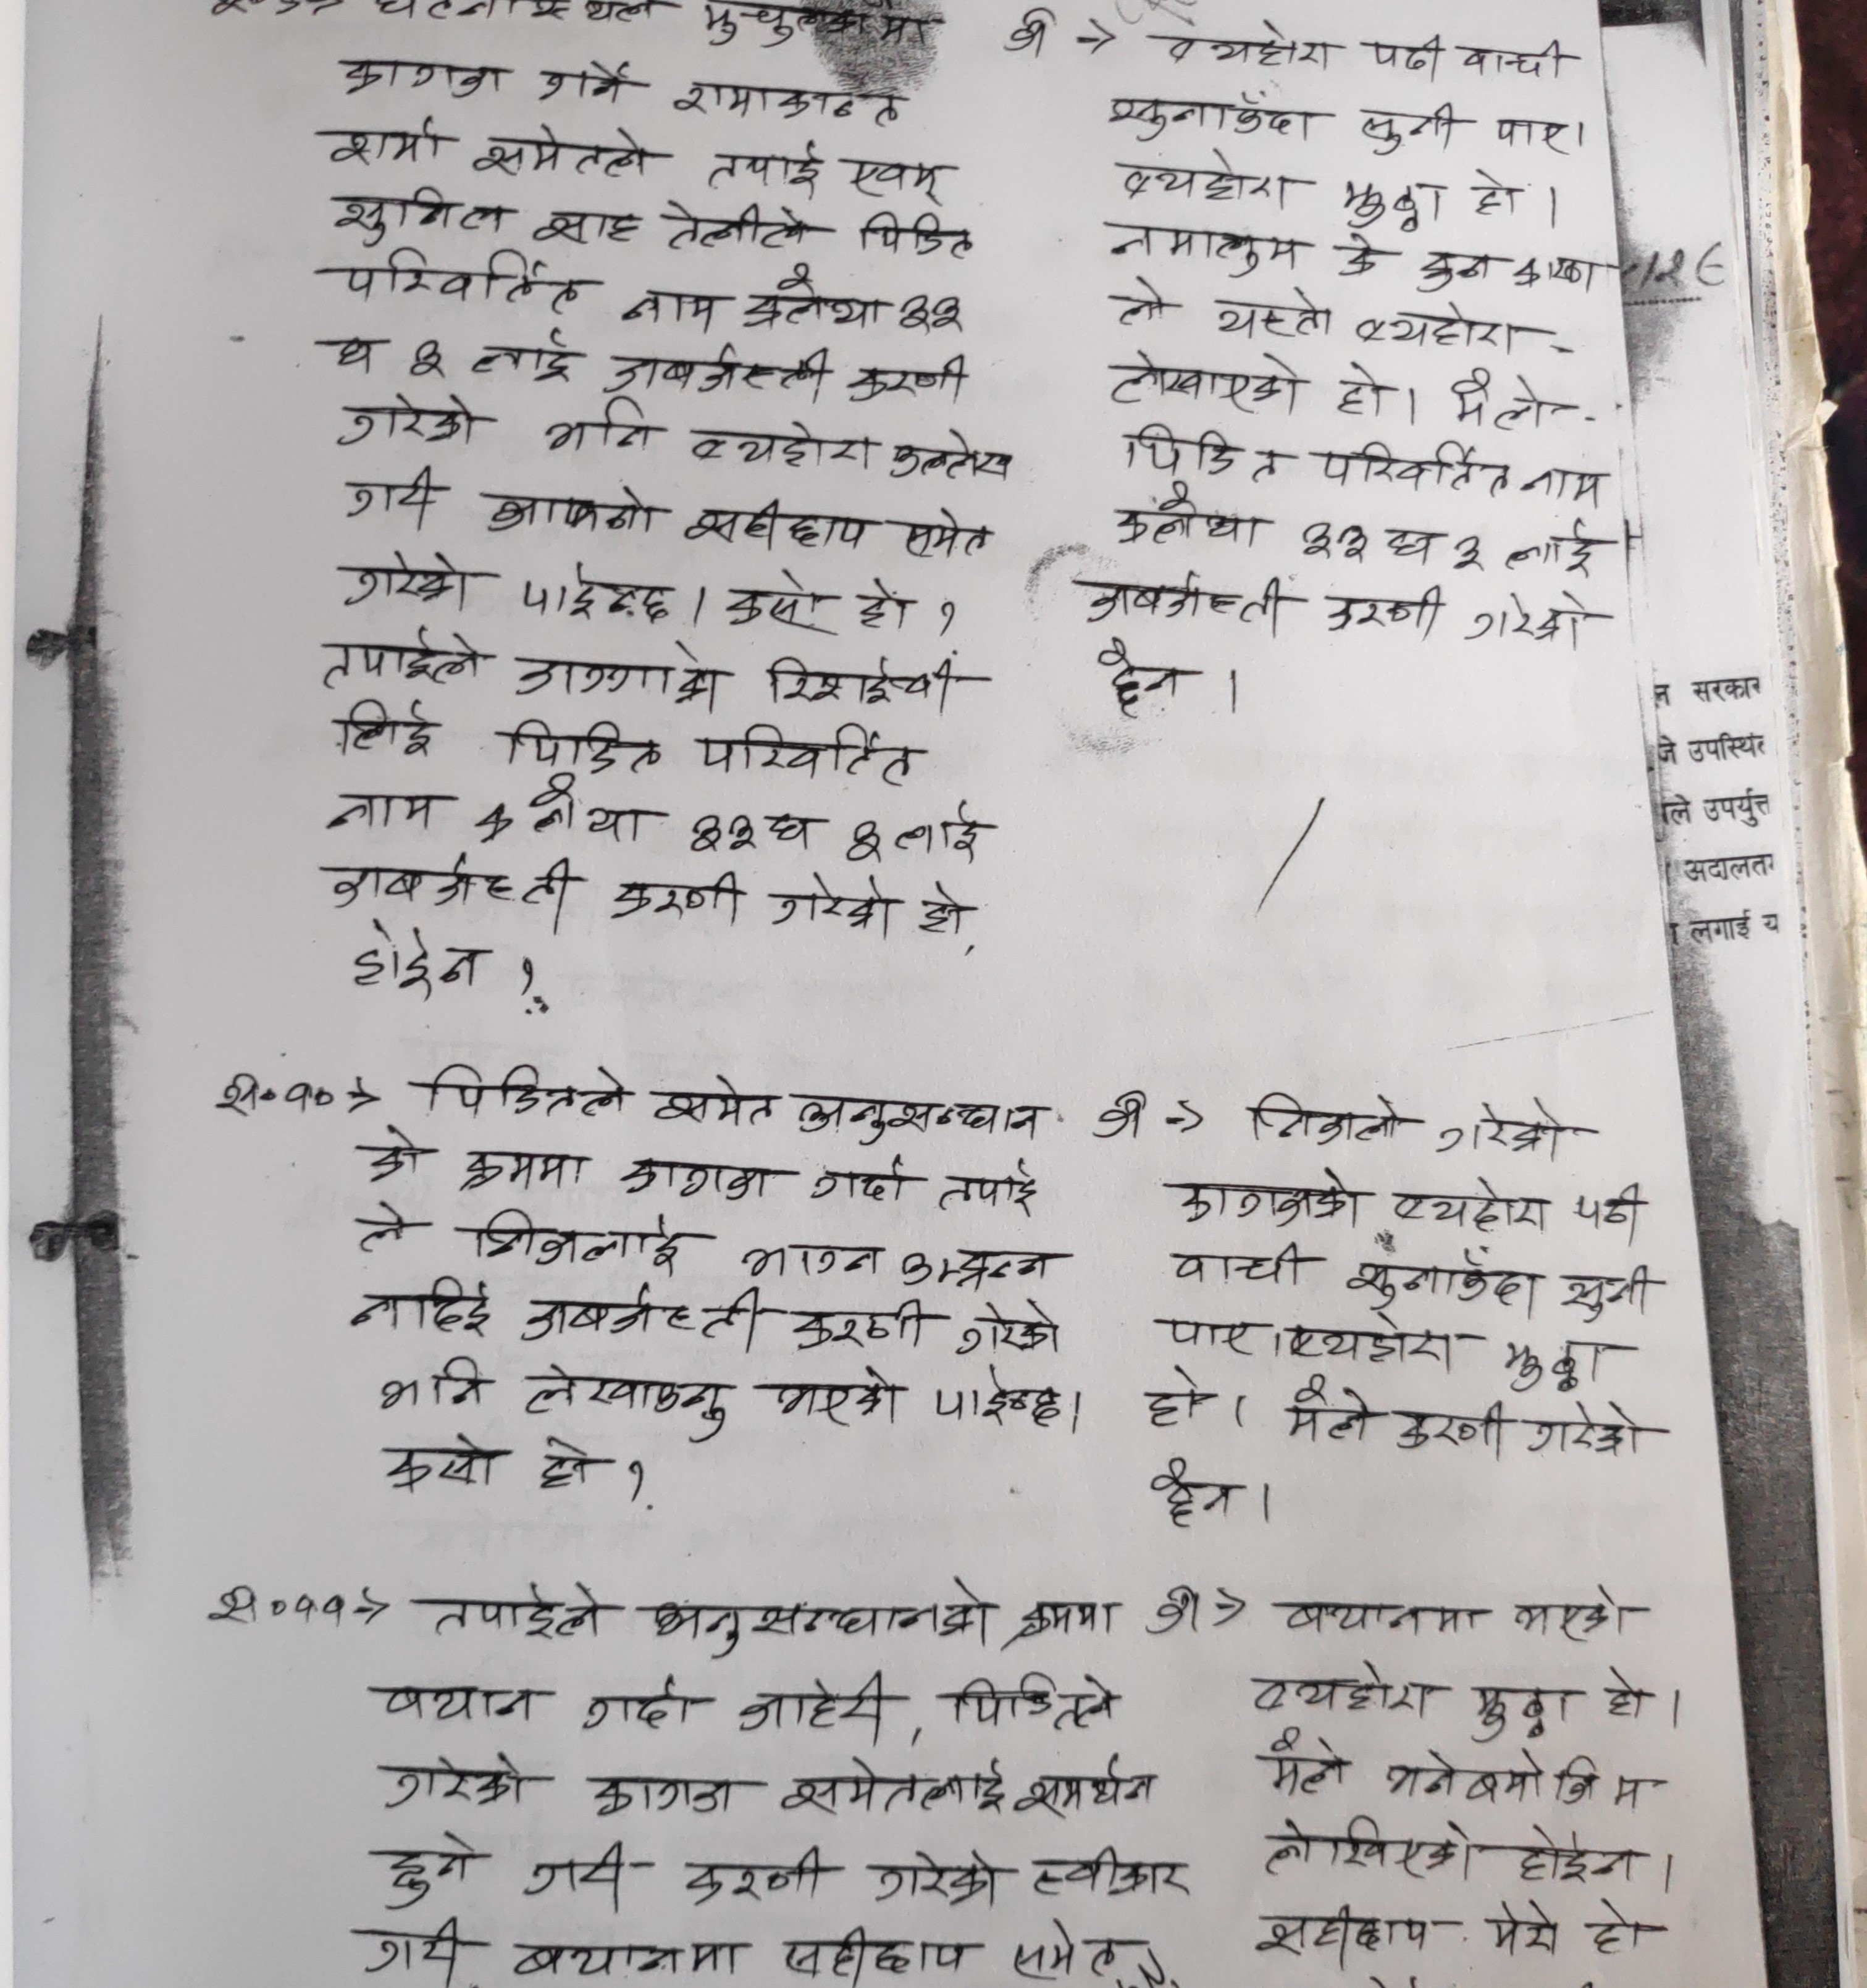 घटनास्थल मुचुल्कामा
कागज गर्ने रामाकान्त
शर्मा समेतले तपाई एवम्
सुनिल साह तेलीले पिडित
परिवर्तित नाम कलैया ३३
घ ३ लाई जबर्जस्ती करणी
गरेको भनि व्यहोरा उल्लेख
गरी आफनो सहीछाप समेत
गरेको पाईन्छ। कसो हो ?
तपाईले जग्गाको रिसईवी
लिई पिडित परिवर्तित
नाम कलैया ३३ घ ३ लाई
जबर्जस्ती करणी गरेको हो,
होईन ?
ज → व्यहोरा पढी वाची
सुनाउँदा सुनी पाए।
व्यहोरा झुठ्ठा हो।
नमालुम के कुन कारण
ले यस्तो व्यहोरा
लेखाएको हो। मैले
पिडित परिवर्तित नाम
कलैया ३३ घ ३ लाई
जबर्जस्ती करणी गरेको
छैन।
स०१०→ पिडितले समेत अनुसन्धान
को क्रममा कागज गर्दा तपाई
ले निजलाई भाग्न उम्कन्न
नदिई जबर्जस्ती करणी गरेको
भनि लेखाउनु भएको पाईन्छ।
कसो हो ?
ज → निजले गरेको
कागजको व्यहोरा पढी
वाची सुनाउँदा सुनी
पाए। व्यहोरा झुठ्ठा
हो। मैले करणी गरेको
छैन।
स०११→ तपाईले अनुसन्धानको क्रममा
बयान गर्दा जाहेरी, पिडितले
गरेको कागज समेतलाई समर्थन
हुने गरी करणी गरेको स्वीकार
गरी बयानमा सहीछाप समेत
ज → बयानमा भएको
व्यहोरा झुठ्ठा हो।
मैले भने बमोजिम
लेखिएको होईन।
सहीछाप मेरो हो
सरकार
जे उपस्थित
ले उपर्युक्त
अदालत
लगाई य